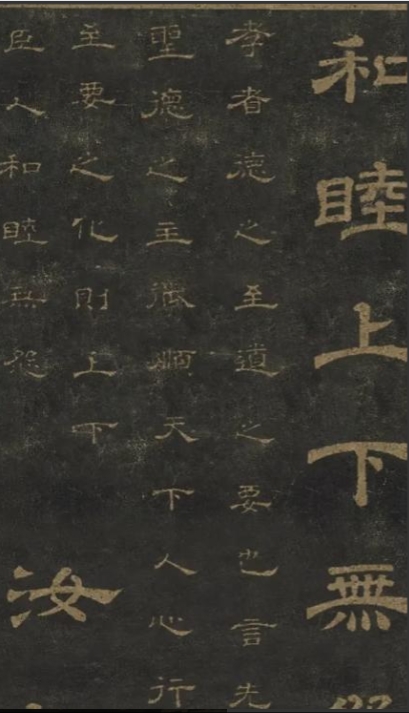 和睦上下無
孝者德之至道之要也言先
聖德之主能順天下人心行
至要之化則上下
臣人和睦無怨
汝